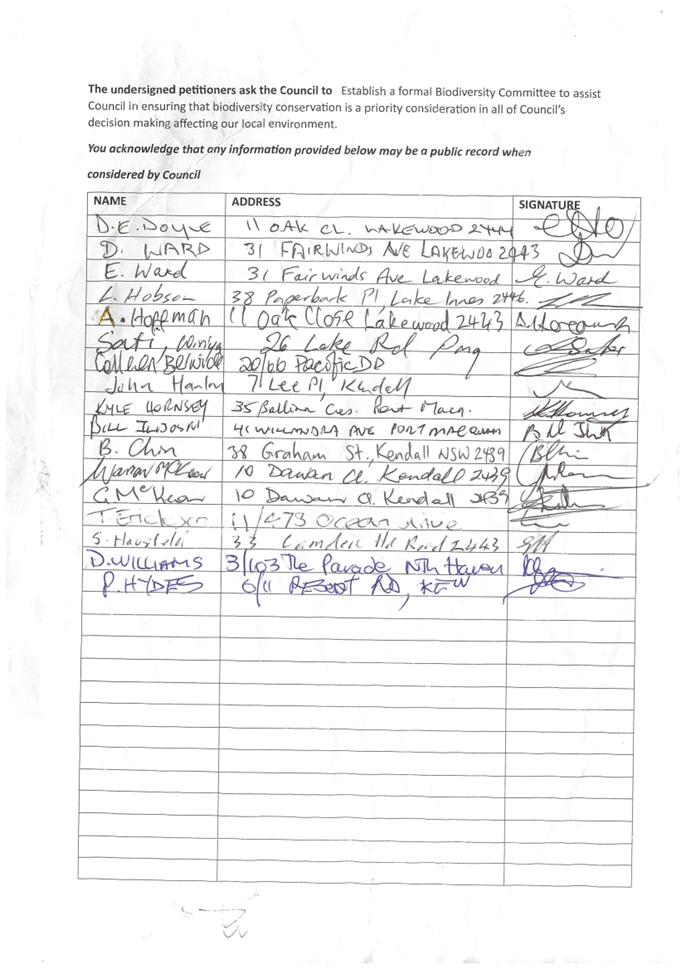 The undersigned petitioners ask the Council to Establish a formal Biodiversity Committee to assist
Council in ensuring that biodiversity conservation is a priority consideration in all of Council's
decision making affecting our local environment.
You acknowledge that any information provided below may be a public record when
considered by Council
NAME ADDRESS SIGNATURE
D.E. Doyle 11 OAK CL. LAKEWOOD 2444
D. WARD 31 FAIRWINDS AVE LAKEWOO 2443
E. Ward 31 Fairwinds Ave Lakewood E. Ward
L. Hobson 38 Paperbark Pl, Lake Innes 2446.
A. Hoffman 11 Oak Close Lakewood 2443
26 Lake Rd Pmq
Colleen 20/66 Pacific Dr
John 7 Lee Pl, Kendall
KYLE HORNSEY 35 Ballina Cres. Port Macq.
BILL 41 WILLANDRA AVE PORT MACQUARI
B. Chin 38 Graham St., Kendall NSW 2439 BChin
Warran McKeow 10 Dawan Cl. Kendall 2439
G McKeow 10 Dawan Cl. Kendall 2439
T Erickson 11/473 Ocean Drive
S. 33 Camden Hd Road 2443
D. WILLIAMS 3/103 The Parade Nth Haven
P. HYDES 6/11 RESORT RD, KEW